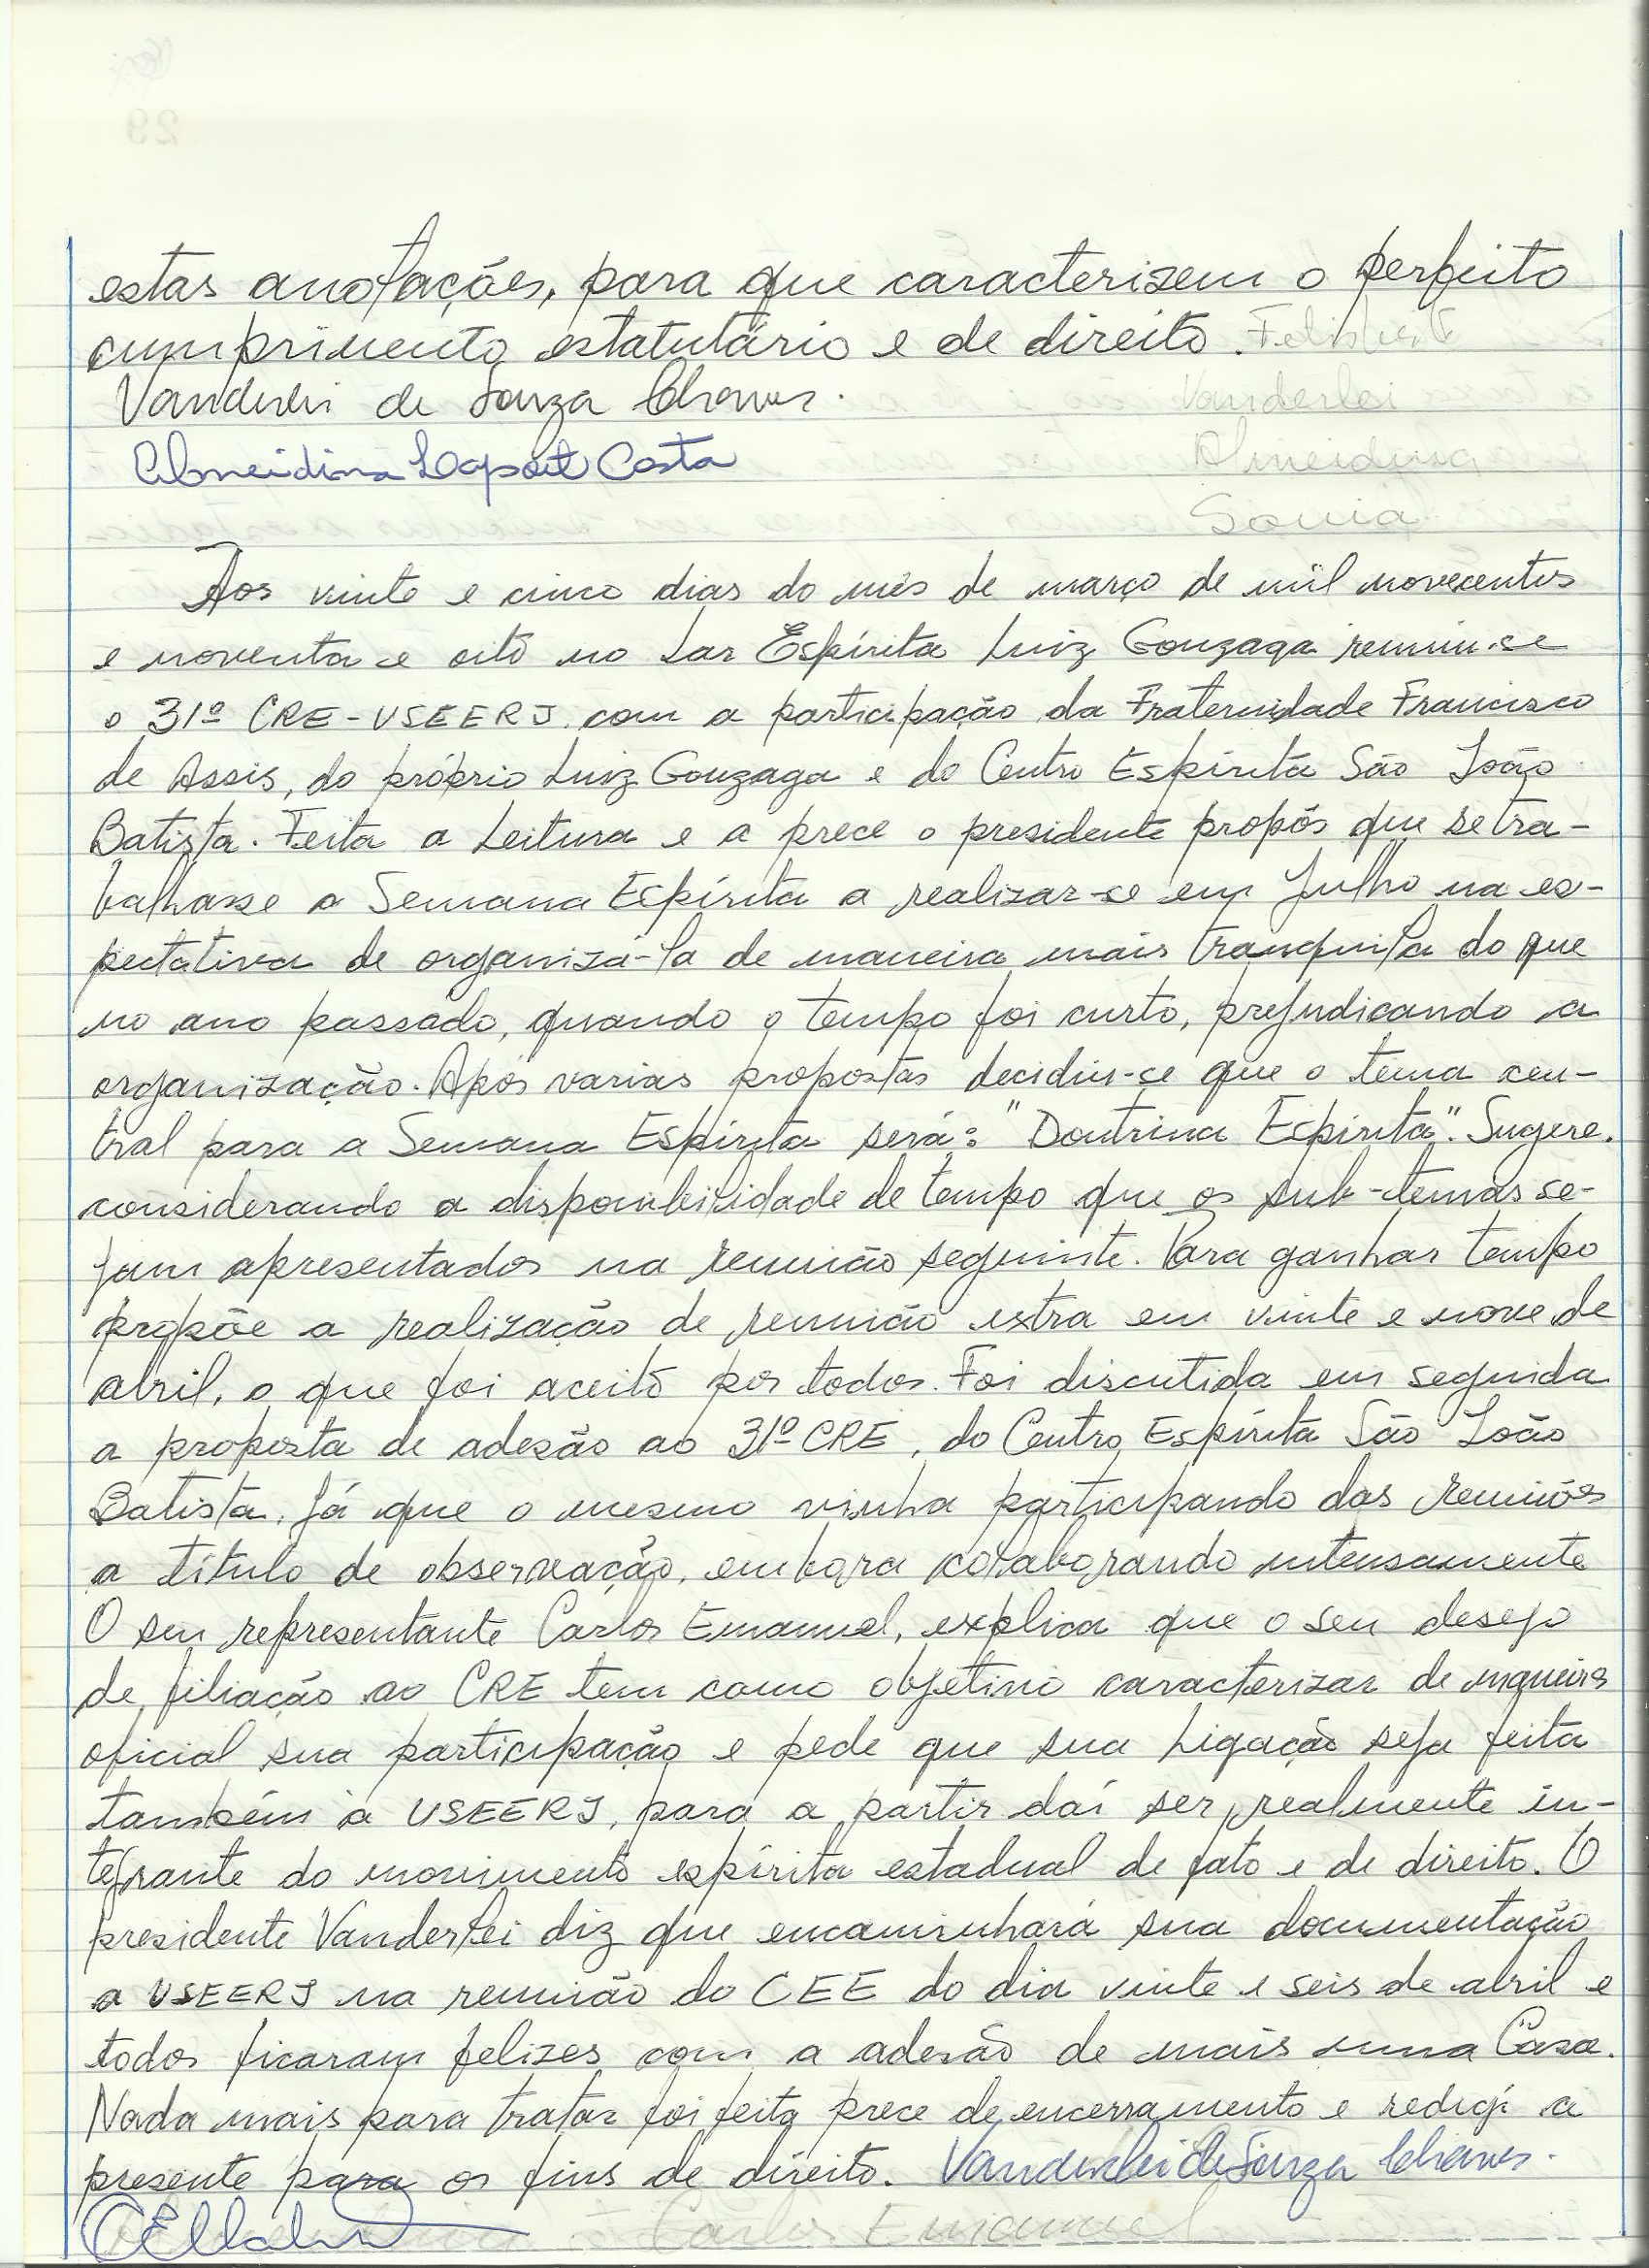 29
estas anotações, para que caracterizem o perfeito
cumprimento estatutário e de direito. Felisberto
Vanderlei de Souza Chaves. Vanderlei
Almeidina Laport Costa Almeidina
Sonia
Aos vinte e cinco dias do mês de março de mil novecentos
e noventa e oito no Lar Espírita Luiz Gonzaga reuniu-se
o 31º CRE-USEERJ com a participação da Fraternidade Francisco
de Assis, do próprio Luiz Gonzaga e do Centro Espírita São João
Batista. Feita a Leitura e a prece o presidente propôs que se tra-
balhasse a Semana Espírita a realizar-se em Julho na es-
pectativa de organizá-la de maneira mais tranquila do que
no ano passado, quando o tempo foi curto, prejudicando a
organização. Após varias propostas decidiu-se que o tema cen-
tral para a Semana Espírita será: "Doutrina Espírita". Sugere,
considerando a disponibilidade de tempo que os sub-temas se-
jam apresentados na reunião seguinte. Para ganhar tempo
propõe a realização de reunião extra em vinte e nove de
abril, o que foi aceito por todos. Foi discutida em seguida
a proposta de adesão ao 31º CRE, do Centro Espírita São João
Batista, já que o mesmo vinha participando das reuniões
a título de observação, embora colaborando intensamente
O seu representante Carlos Emanuel, explica que o seu desejo
de filiação ao CRE tem como objetivo caracterizar de maneira
oficial sua participação e pede que sua Ligação seja feita
também à USEERJ, para a partir daí ser realmente in-
tegrante do movimento espírita estadual de fato e de direito. O
presidente Vanderlei diz que encaminhará sua documentação
a USEERJ na reunião do CEE do dia vinte e seis de abril e
todos ficaram felizes com a adesão de mais uma Casa.
Nada mais para tratar foi feita prece de encerramento e redigi a
presente para os fins de direito. Vanderlei de Souza Chaves.
Carlos Emanuel